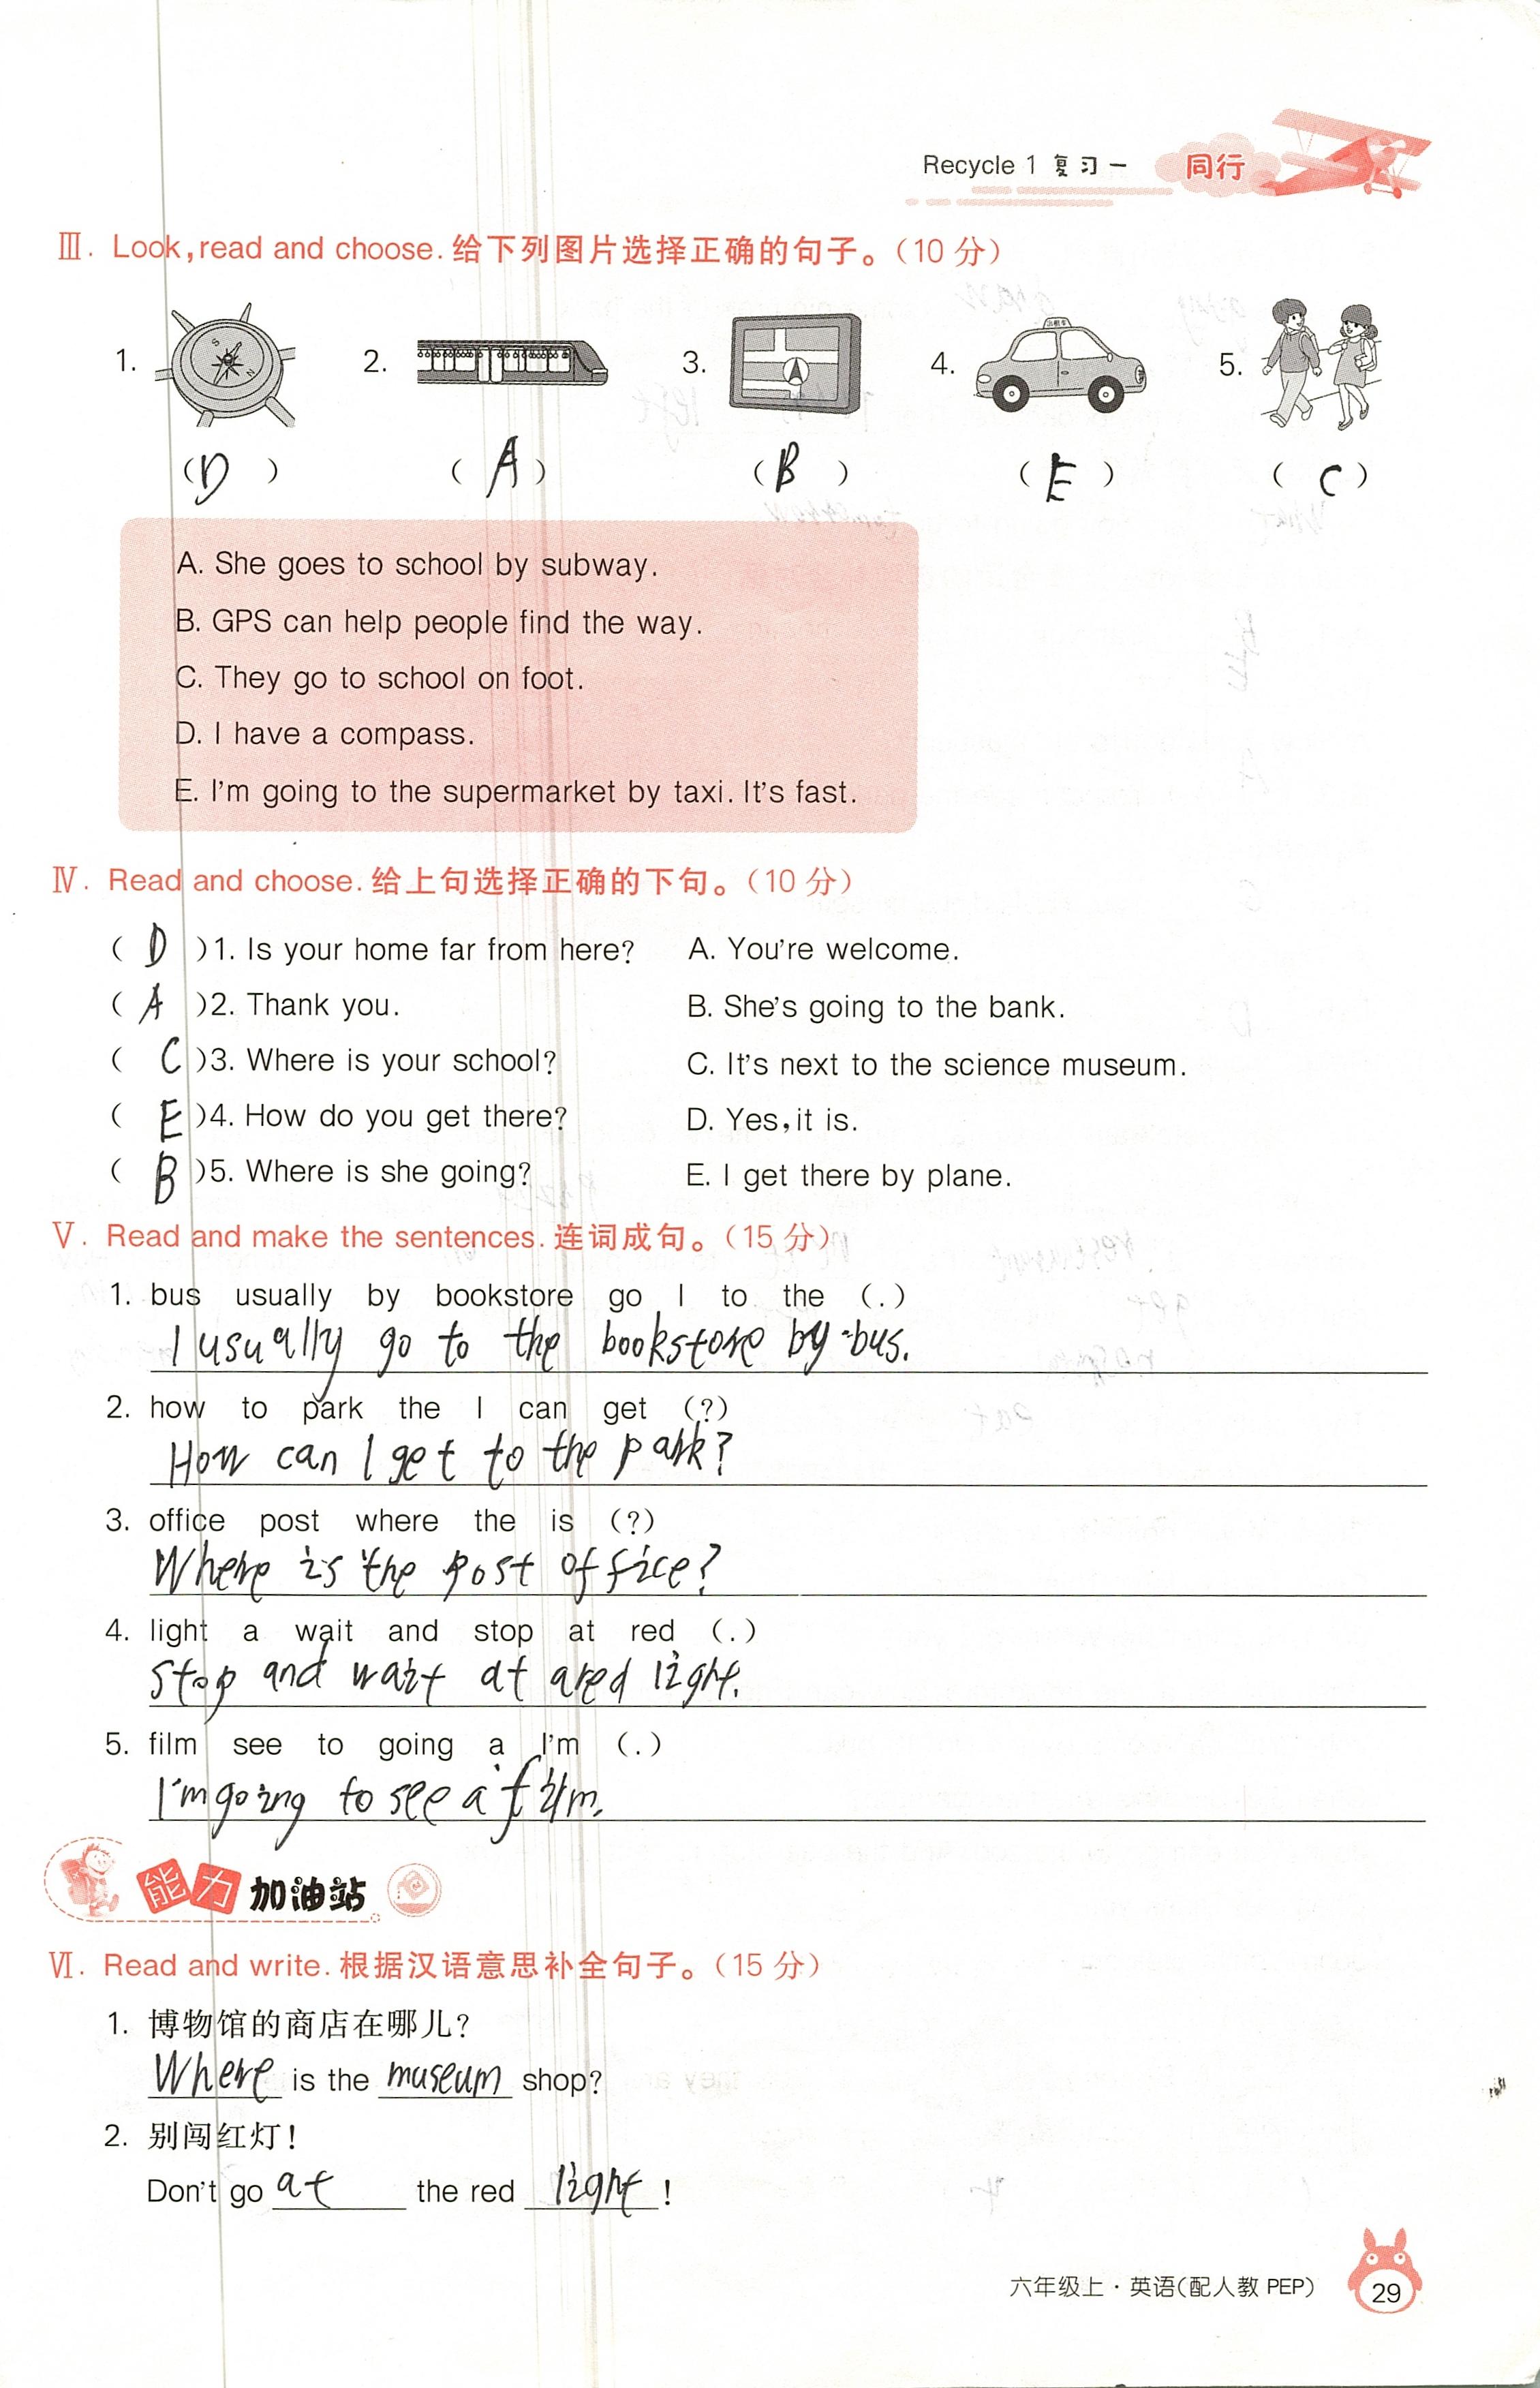 Recycle 1 复习一 同行
Ⅲ. Look, read and choose. 给下列图片选择正确的句子。(10 分)
1. 2. 3. 4. 5.
(D) (A) (B) (E) (C)
A. She goes to school by subway.
B. GPS can help people find the way.
C. They go to school on foot.
D. I have a compass.
E. I'm going to the supermarket by taxi. It's fast.
Ⅳ. Read and choose. 给上句选择正确的下句。(10 分)
(D)1. Is your home far from here? A. You're welcome.
(A)2. Thank you. B. She's going to the bank.
(C)3. Where is your school? C. It's next to the science museum.
(E)4. How do you get there? D. Yes, it is.
(B)5. Where is she going? E. I get there by plane.
Ⅴ. Read and make the sentences. 连词成句。(15 分)
1. bus usually by bookstore go I to the (.)
I usually go to the bookstore by bus.
2. how to park the I can get (?)
How can I get to the park?
3. office post where the is (?)
Where is the post office?
4. light a wait and stop at red (.)
Stop and wait at a red light.
5. film see to going a I'm (.)
I'm going to see a film.
能力加油站
Ⅵ. Read and write. 根据汉语意思补全句子。(15 分)
1. 博物馆的商店在哪儿?
Where is the museum shop?
2. 别闯红灯!
Don't go at the red light!
六年级上·英语(配人教 PEP) 29